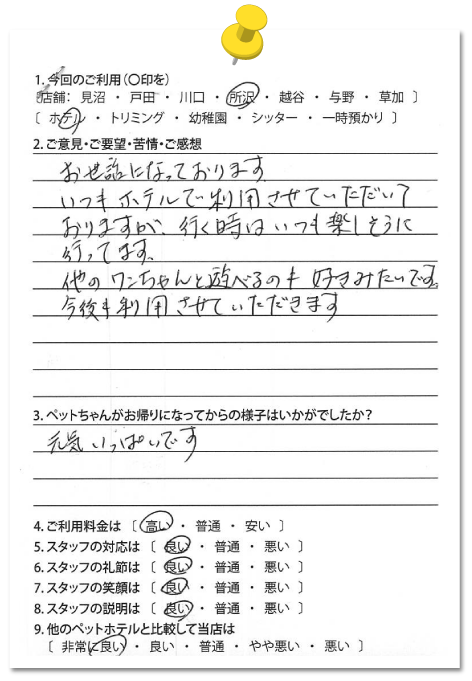 1. 今回のご利用(〇印を)
店舗: 見沼 ・ 戸田 ・ 川口 ・ 所沢 ・ 越谷 ・ 与野 ・ 草加 ]
[ ホテル ・ トリミング ・ 幼稚園 ・ シッター ・ 一時預かり ]
2. ご意見・ご要望・苦情・ご感想
お世話になっております
いつもホテルで利用させていただいて
おりますが、行く時はいつも楽しそうに
行ってます。
他のワンちゃんと遊べるのも好きみたいです。
今後も利用させていただきます
3. ペットちゃんがお帰りになってからの様子はいかがでしたか?
元気いっぱいです
4. ご利用料金は [ 高い ・ 普通 ・ 安い ]
5. スタッフの対応は [ 良い ・ 普通 ・ 悪い ]
6. スタッフの礼節は [ 良い ・ 普通 ・ 悪い ]
7. スタッフの笑顔は [ 良い ・ 普通 ・ 悪い ]
8. スタッフの説明は [ 良い ・ 普通 ・ 悪い ]
9. 他のペットホテルと比較して当店は
[ 非常に良い ・ 良い ・ 普通 ・ やや悪い ・ 悪い ]